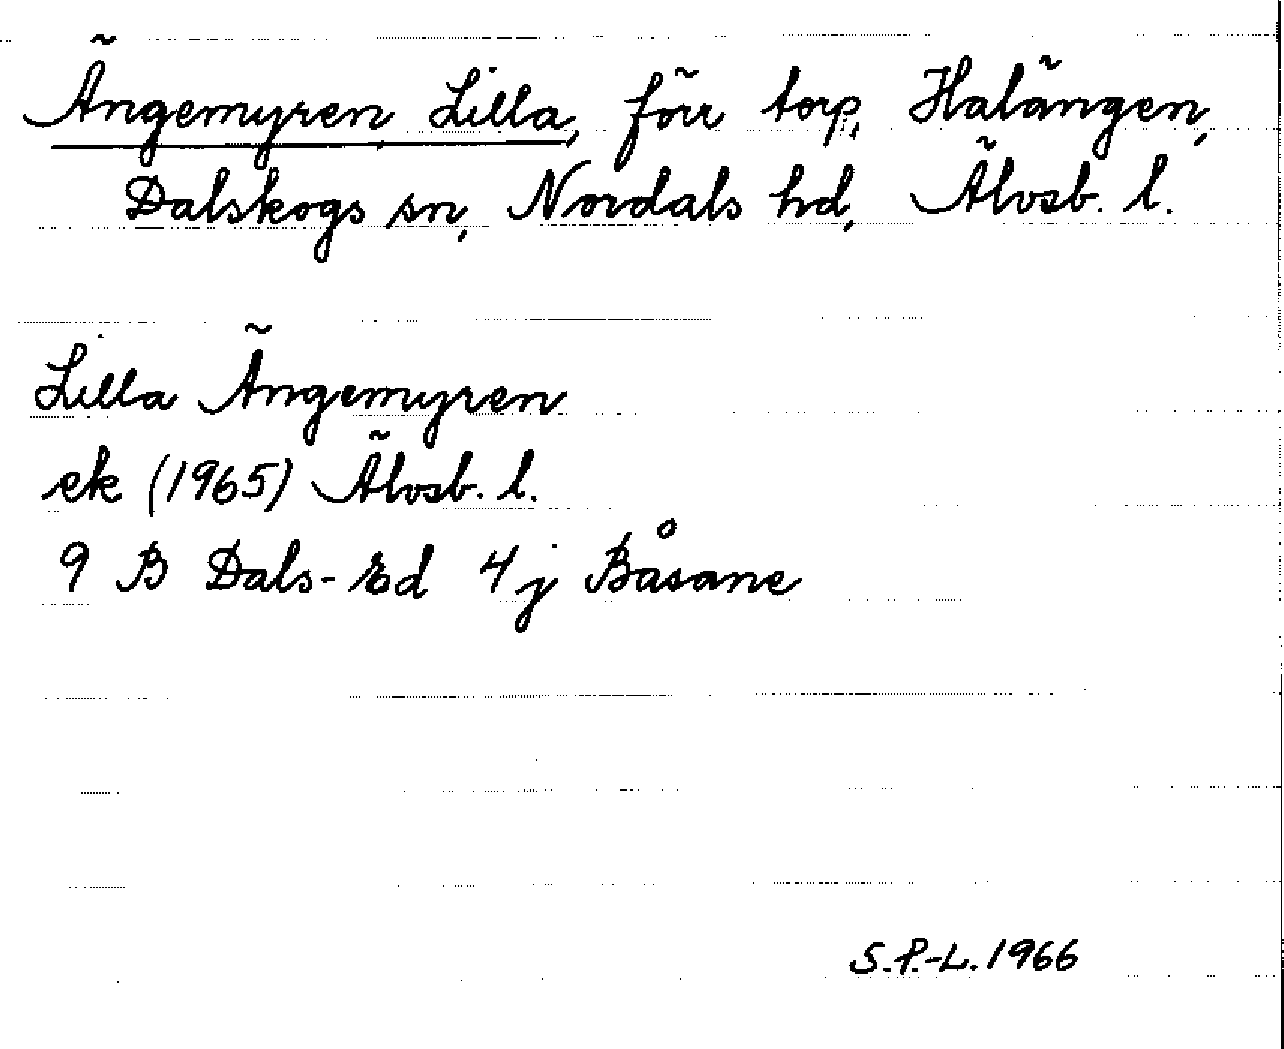 Ängemyren, Lilla, förr torp, Halängen,
Dalskogs sn, Nordals hd, Älvsb. l.
Lilla Ängemyren
ek (1965) Älvsb. l.
9 B Dals-Ed 4j Båsane
S.P.-L. 1966